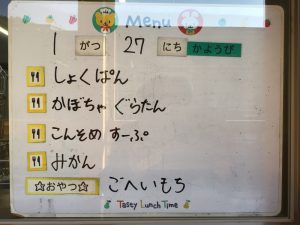 Menu
1 がつ 27 にち かようび
しょくぱん
かぼちゃ ぐらたん
こんそめ すーぷ
みかん
☆おやつ☆ ごへいもち
Tasty Lunch Time